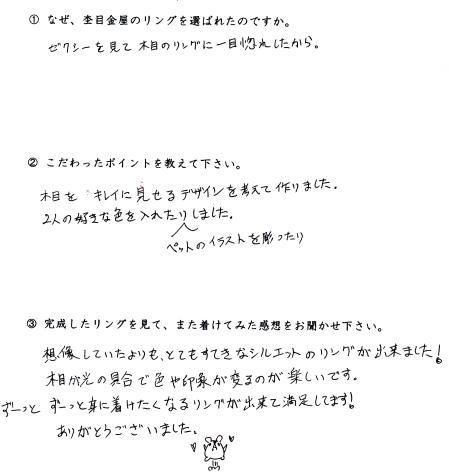 ① なぜ、杢目金屋のリングを選ばれたのですか。
ゼクシーを見て 木目のリングに一目惚れしたから。
② こだわったポイントを教えて下さい。
木目を キレイに見せるデザインを考えて作りました。
2人の好きな色を入れたりしました。
ペットのイラストを彫ったり
③ 完成したリングを見て、また着けてみた感想をお聞かせ下さい。
想像していたよりも、とてもすてきなシルエットのリングが出来ました!
木目が光の具合で色や印象が変るのが楽しいです。
ずーっと ずーっと身に着けたくなるリングが出来て満足してます!
ありがとうございました。